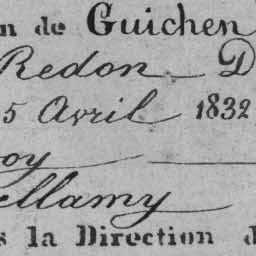 n de Guichen
Redon D
5 Avril 1832
oy
ellamy
s la Direction d